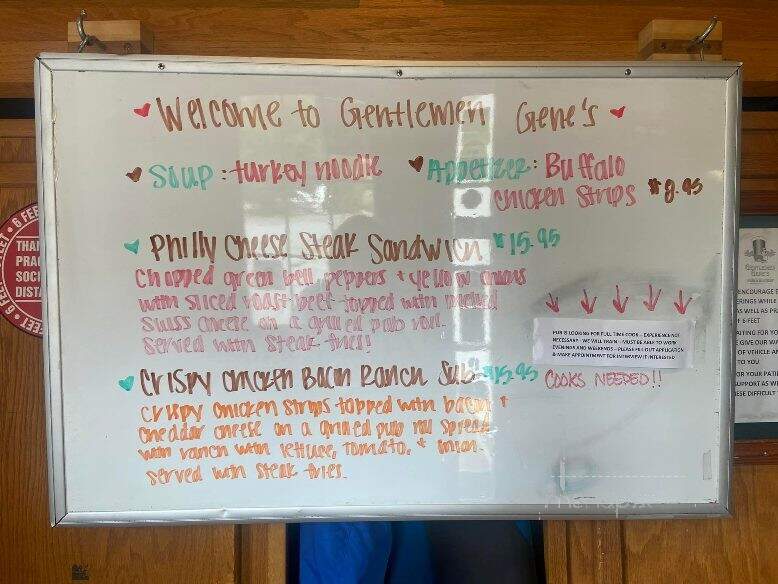 Welcome to Gentlemen Gene's
Soup: turkey noodle
Appetizer: Buffalo
chicken strips $8.95
Philly Cheese Steak Sandwich $15.95
Chopped green bell peppers + yellow onions
with sliced roast beef topped with melted
Swiss cheese on a grilled pub roll.
Served with steak fries!
Crispy Chicken Bacon Ranch Sub $15.95
crispy chicken strips topped with bacon +
cheddar cheese on a grilled pub roll spread
with ranch with lettuce, tomato, + onion.
served with steak fries.
PUB IS LOOKING FOR FULL TIME COOK – EXPERIENCE NOT
NECESSARY - WE WILL TRAIN – MUST BE ABLE TO WORK
EVENINGS AND WEEKENDS – PLEASE FILL OUT APPLICATION
& MAKE APPOINTMENT FOR INTERVIEW IF INTERESTED
COOKS NEEDED!!
6 FEET
THAN
PRAC
SOCI
DISTA
ENCOURAGE
ERINGS WHILE
AS WELL AS PR
6-FEET
AITING FOR YO
E GIVE OUR WA
OF VEHICLE A
TO YOU
OR YOUR PATI
UPPORT AS W
ESE DIFFICULT